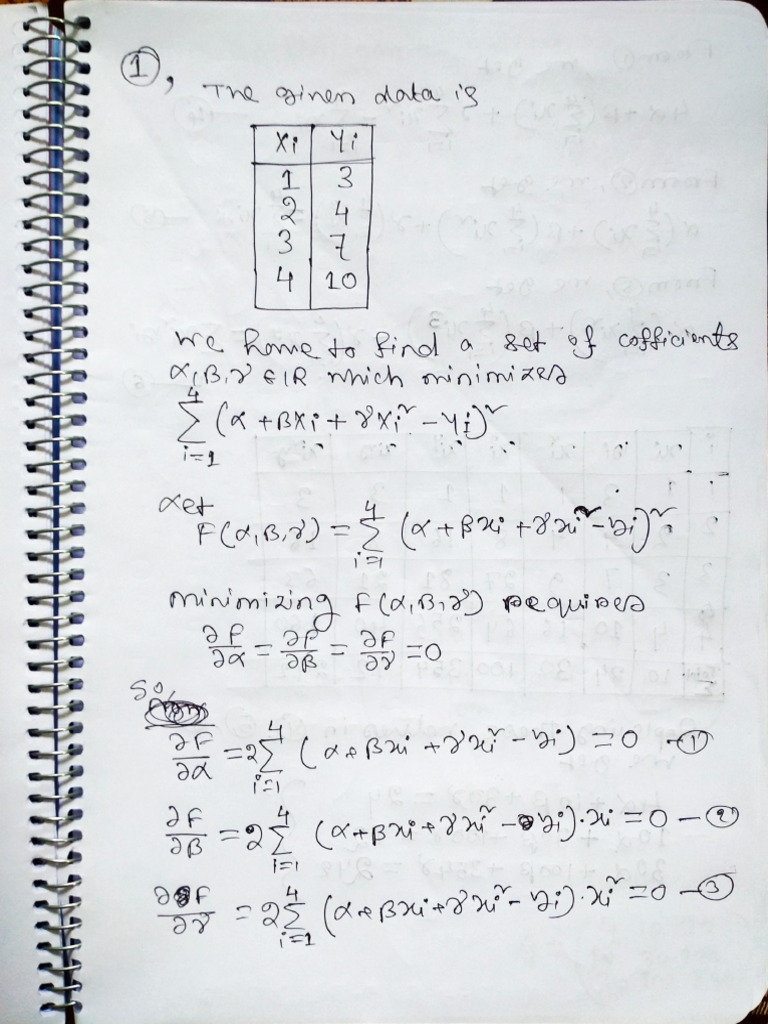 ①, The given data is
xi yi
1 3
2 4
3 7
4 10
we have to find a set of cofficients
α, β, γ ∈ IR which minimizes
4
∑ (α + βxi + γxi² - yi)²
i=1
Let
F(α, β, γ) = ∑_{i=1}^{4} (α + βxi + γxi² - yi)²
minimizing F(α, β, γ) requires
∂F/∂α = ∂F/∂β = ∂F/∂γ = 0
So,
∂F/∂α = 2∑_{i=1}^{4} (α + βxi + γxi² - yi) = 0 - ①
∂F/∂β = 2∑_{i=1}^{4} (α + βxi + γxi² - yi).xi = 0 - ②
∂F/∂γ = 2∑_{i=1}^{4} (α + βxi + γxi² - yi).xi² = 0 - ③